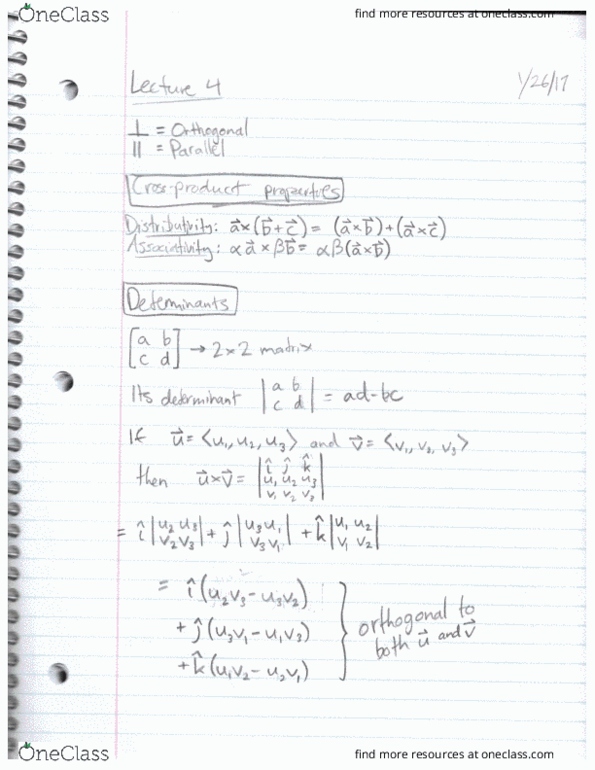 OneClass find more resources at oneclass.com
Lecture 4 1/26/17
⊥ = Orthogonal
|| = Parallel
Cross-product properties
Distributivity: a⃗×(b⃗+c⃗) = (a⃗×b⃗)+(a⃗×c⃗)
Associativity: αa⃗×βb⃗ = αβ(a⃗×b⃗)
Determinants
[a b
c d] → 2×2 matrix
Its determinant |a b
c d| = ad-bc
If u⃗ = <u₁, u₂, u₃> and v⃗ = <v₁, v₂, v₃>
then u⃗×v⃗ = |î ĵ k̂
u₁ u₂ u₃
v₁ v₂ v₃|
= î |u₂ u₃ + ĵ |u₃ u₁ + k̂ |u₁ u₂
v₂ v₃| v₃ v₁| v₁ v₂|
= î(u₂v₃-u₃v₂)
+ ĵ(u₃v₁-u₁v₃)
+ k̂(u₁v₂-u₂v₁)
orthogonal to
both u⃗ and v⃗
OneClass find more resources at oneclass.com